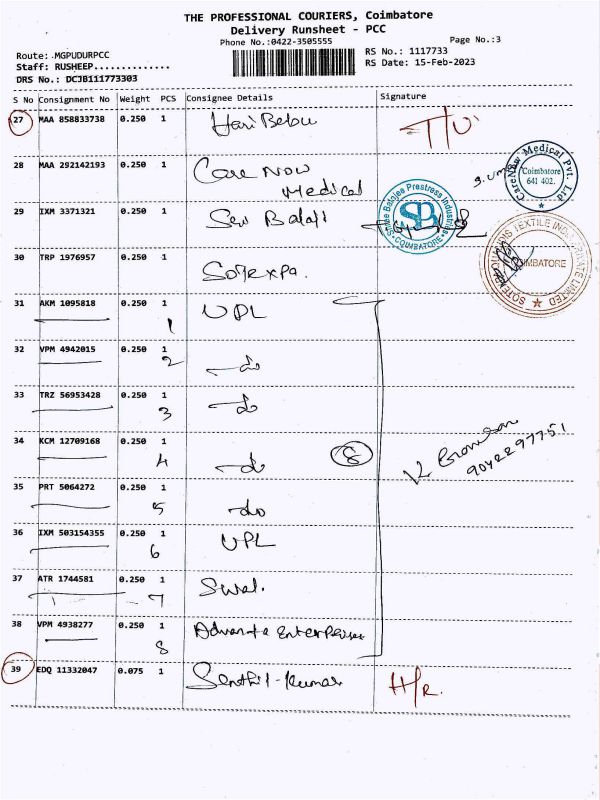 THE PROFESSIONAL COURIERS, Coimbatore
Delivery Runsheet - PCC
Phone No.:0422-3505555
Page No.:3
Route: .MGPUDURPCC
RS No.: 1117733
Staff: RUSHEEP..............
RS Date: 15-Feb-2023
DRS No.: DCJB111773303
S No Consignment No Weight PCS Consignee Details Signature
27 MAA 858833738 0.250 1 Hari Babu
28 MAA 292142193 0.250 1 Care Now
Medical
CareNow Medical Pvt. Ltd
Coimbatore
641 402.
29 IXM 3371321 0.250 1 Sri Balaji
Shree Balajee Prestress Industries
SB
COIMBATORE
30 TRP 1976957 0.250 1 Sotexpa.
TEXTILE INDIA PRIVATE LIMITED
COIMBATORE
31 AKM 1095818 0.250 1 UPL
1
32 VPM 4942015 0.250 1 do
2
33 TRZ 56953428 0.250 1 do
3
34 KCM 12709168 0.250 1 do
4
8
9042297751
35 PRT 5064272 0.250 1 do
5
36 IXM 503154355 0.250 1 UPL
6
37 ATR 1744581 0.250 1 Swal.
7
38 VPM 4938277 0.250 1 Advanta Enterprises
8
39 EDQ 11332047 0.075 1 Senthil-Kumar H/R.